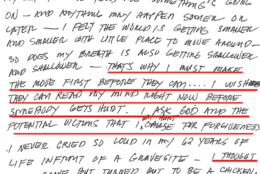 SOMETHING IS GOING
ON – AND ANYTHING MAY HAPPEN SOONER OR
LATER — I FELT THE WORLD IS GETTING SMALLER
AND SMALLER WITH LITTLE PLACE TO MOVE AROUND—
SO DOES MY BREATH IS ALSO GETTING SHALLOWER
AND SHALLOWER – THAT'S WHY I MUST MAKE
THE MOVE FIRST BEFORE THEY CAN.... I WISH
THEY CAN READ MY MIND RIGHT NOW BEFORE
SOMEBODY GETS HURT. I ASK GOD AND THE
POTENTIAL VICTIMS THAT I CAUSE FOR FORGIVENESS
I NEVER CRIED SO LOUD IN MY 62 YEARS OF
LIFE INFRONT OF A GRAVESITE – I THOUGHT
COME BUT TURNED OUT TO BE A CHICKEN.